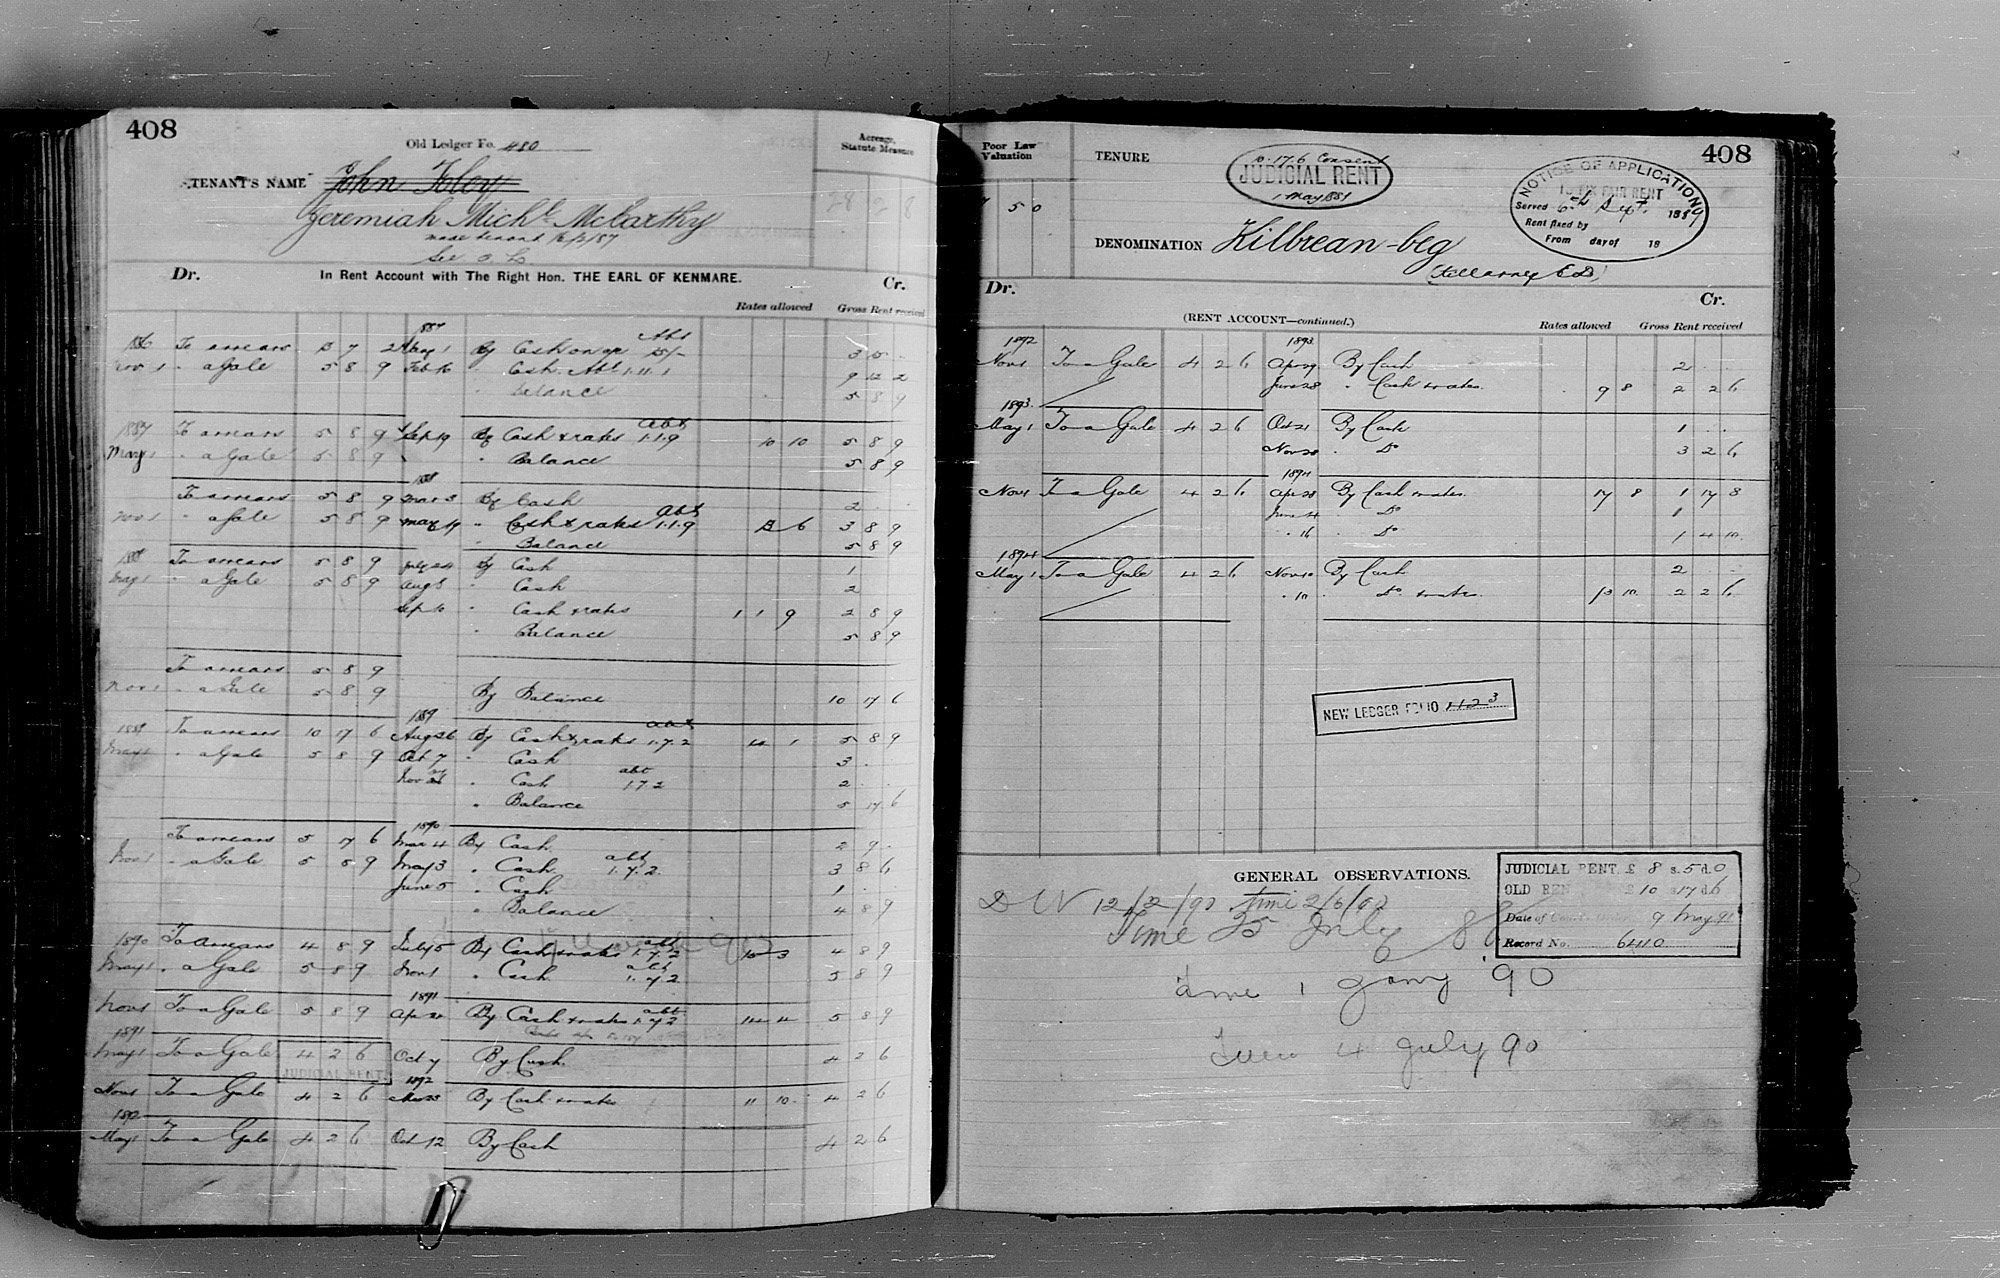 408
Old Ledger Fo. 480
Acreage, Statute Measure
TENANT'S NAME John Foley
Jeremiah Michl. McCarthy
made tenant
See O. L.
28 2 8
Dr. In Rent Account with The Right Hon. THE EARL OF KENMARE. Cr.
Rates allowed Gross Rent received
1886 To arrears 7 2 1887 May 1 By Cash on 15/- 3 15 .
Nov 1 " a Gale 5 8 9 Feb 16 " Cash Abt 1.11.1 9 12 2
" Balance 5 8 9
1887 To arrears 5 8 9 Sep 19 By Cash & rates abt 1.1.9 10 10 5 8 9
May 1 " a Gale 5 8 9 " Balance 5 8 9
1888
To arrears 5 8 9 Mar 3 By Cash 2 . .
Nov 1 " a Gale 5 8 9 May 19 " Cash & rates abt 1.1.9 6 3 8 9
" Balance 5 8 9
1888 To arrears 5 8 9 July 24 By Cash 1
May 1 " a Gale 5 8 9 Aug 8 " Cash 2
Sep 10 " Cash & rates 1 1 9 2 8 9
" Balance 5 8 9
To arrears 5 8 9
Nov 1 " a Gale 5 8 9 By Balance 10 17 6
1889
1889 To arrears 10 17 6 Aug 26 By Cash & rates abt 1.7.2 14 1 5 8 9
May 1 " a Gale 5 8 9 Oct 7 " Cash 3 .
Nov " Cash abt 1.7.2 2 . .
" Balance 5 17 6
1890
To arrears 5 17 6 Mar 4 By Cash 2 9 .
Nov 1 " a Gale 5 8 9 May 3 " Cash abt 1.7.2. 3 8 6
June 5 " Cash 1 . .
" Balance 4 8 9
1890 To arrears 4 8 9 July 5 By Cash & rates abt 1.7.2 15 3 4 8 9
May 1 " a Gale 5 8 9 Nov 1 " Cash abt 1.7.2 5 8 9
1891
Nov 1 To a Gale 5 8 9 Apr By Cash & rates abt 1.7.2 14 4 5 8 9
1891
May 1 To a Gale 4 2 6 Oct 7 By Cash 4 2 6
JUDICIAL RENT
1892
Nov 1 To a Gale 4 2 6 By Cash & rates 11 10 4 2 6
1892
May 1 To a Gale 4 2 6 Oct 12 By Cash 4 2 6
408
Poor Law Valuation
5 0
TENURE
10.17.6 Consent
JUDICIAL RENT
1 May 1891
NOTICE OF APPLICATION
TO FIX FAIR RENT
Served 6th Sept. 1887
Rent fixed by
From day of 18
DENOMINATION Kilbrean-beg
(Killarney E D)
Dr. Cr.
(RENT ACCOUNT—continued.)
Rates allowed Gross Rent received
1892 1893
Nov 1 To a Gale 4 2 6 Apr 29 By Cash 2 . .
June 28 " Cash & rates. 9 8 2 2 6
1893
May 1 To a Gale 4 2 6 Oct 21 By Cash 1 . .
Nov 28 " Do 3 2 6
1894
Nov 1 To a Gale 4 2 6 Apr 28 By Cash & rates. 17 8 1 17 8
June 4 Do 1
" 16 " Do 1 4 10
1894
May 1 To a Gale 4 2 6 Nov 10 By Cash 2 . .
" 10 " Do & rates. 10 2 2 6
NEW LEDGER FOLIO 1123
GENERAL OBSERVATIONS.
JUDICIAL RENT £ 8 s. 5 d. 0
OLD RENT £ 10 s. 17 d. 6
Date of Court Order 9 May 91
Record No. 6410
D N 12/2/90 time 2/6/90
Time 25 July 88
time 1 Jany '90
4 July 90